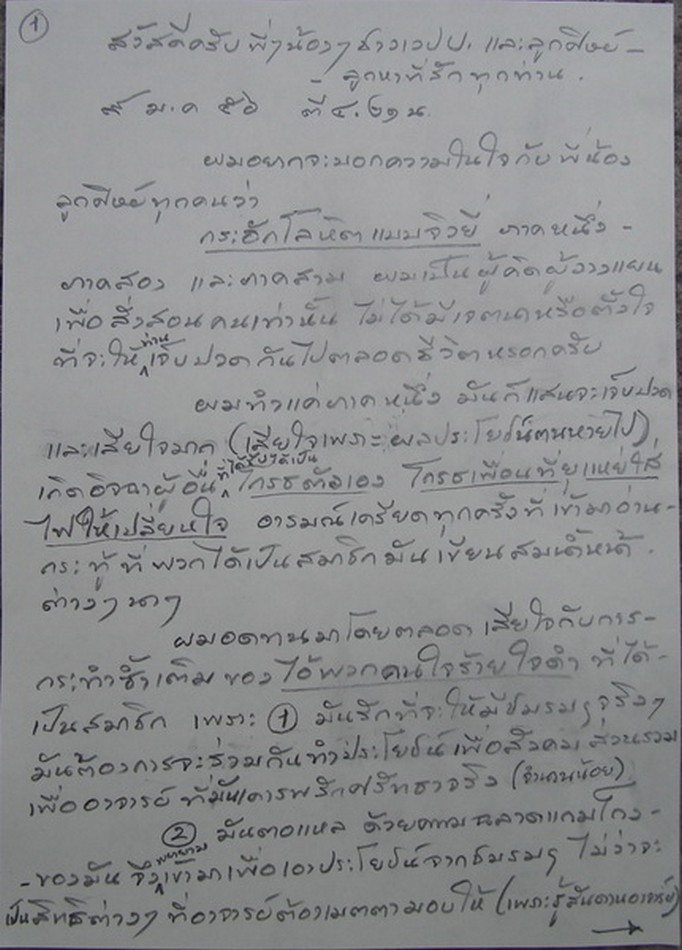 ①
สวัสดีครับ พี่ๆน้องๆชาวเวปป. และลูกศิษย์ –
– ลูกหาที่รักทุกท่าน .
๙ ม.ค ๕๖ ตี ๔.๒๑ น.
ผมอยากจะบอกความในใจกับพี่น้อง
ลูกศิษย์ทุกคนว่า
กระอักโลหิตแบบจิวยี่ ภาคหนึ่ง –
ภาคสอง และภาคสาม ผมเป็นผู้คิดผู้วางแผน
เพื่อสั่งสอนคนเท่านั้น ไม่ได้มีเจตนาหรือตั้งใจ
ที่จะให้ท่านเจ็บปวดกันไปตลอดชีวิตหรอกครับ
ผมทำแค่ภาคหนึ่ง มันก็แสนจะเจ็บปวด
และเสียใจมาก (เสียใจเพราะผลประโยชน์ตนหายไป)
เกิดอิจฉาผู้อื่นที่ได้รับได้เป็น โกรธตัวเอง โกรธเพื่อนที่ยุแหย่ใส่
ไฟให้เปลี่ยนใจ อารมณ์เครียดทุกครั้งที่เข้ามาอ่าน –
กระทู้ ที่พวกได้เป็นสมาชิกมันเขียนสมน้ำหน้า .
ต่างๆ นาๆ
ผมอดทนมาโดยตลอด เสียใจกับการ –
กระทำซ้ำเติม ของไอ้พวกคนใจร้ายใจดำ ที่ได้ –
เป็นสมาชิก เพราะ ① มันรักที่จะให้มีชมรมๆจริงๆ
มันต้องการจะร่วมกันทำประโยชน์เพื่อสังคม ส่วนรวม
เพื่ออาจารย์ ที่มันเคารพรักศรัทธาจริง (จำนวนน้อย)
② มันตอแหล ด้วยความฉลาดแกมโกง –
– ของมัน จึงพยายามเข้ามาเพื่อเอาประโยชน์จากชมรมๆ ไม่ว่าจะ
เป็นสิทธิต่างๆ ที่อาจารย์ต้องเมตตามอบให้ (เพราะรู้สันดานอาจารย์)
→